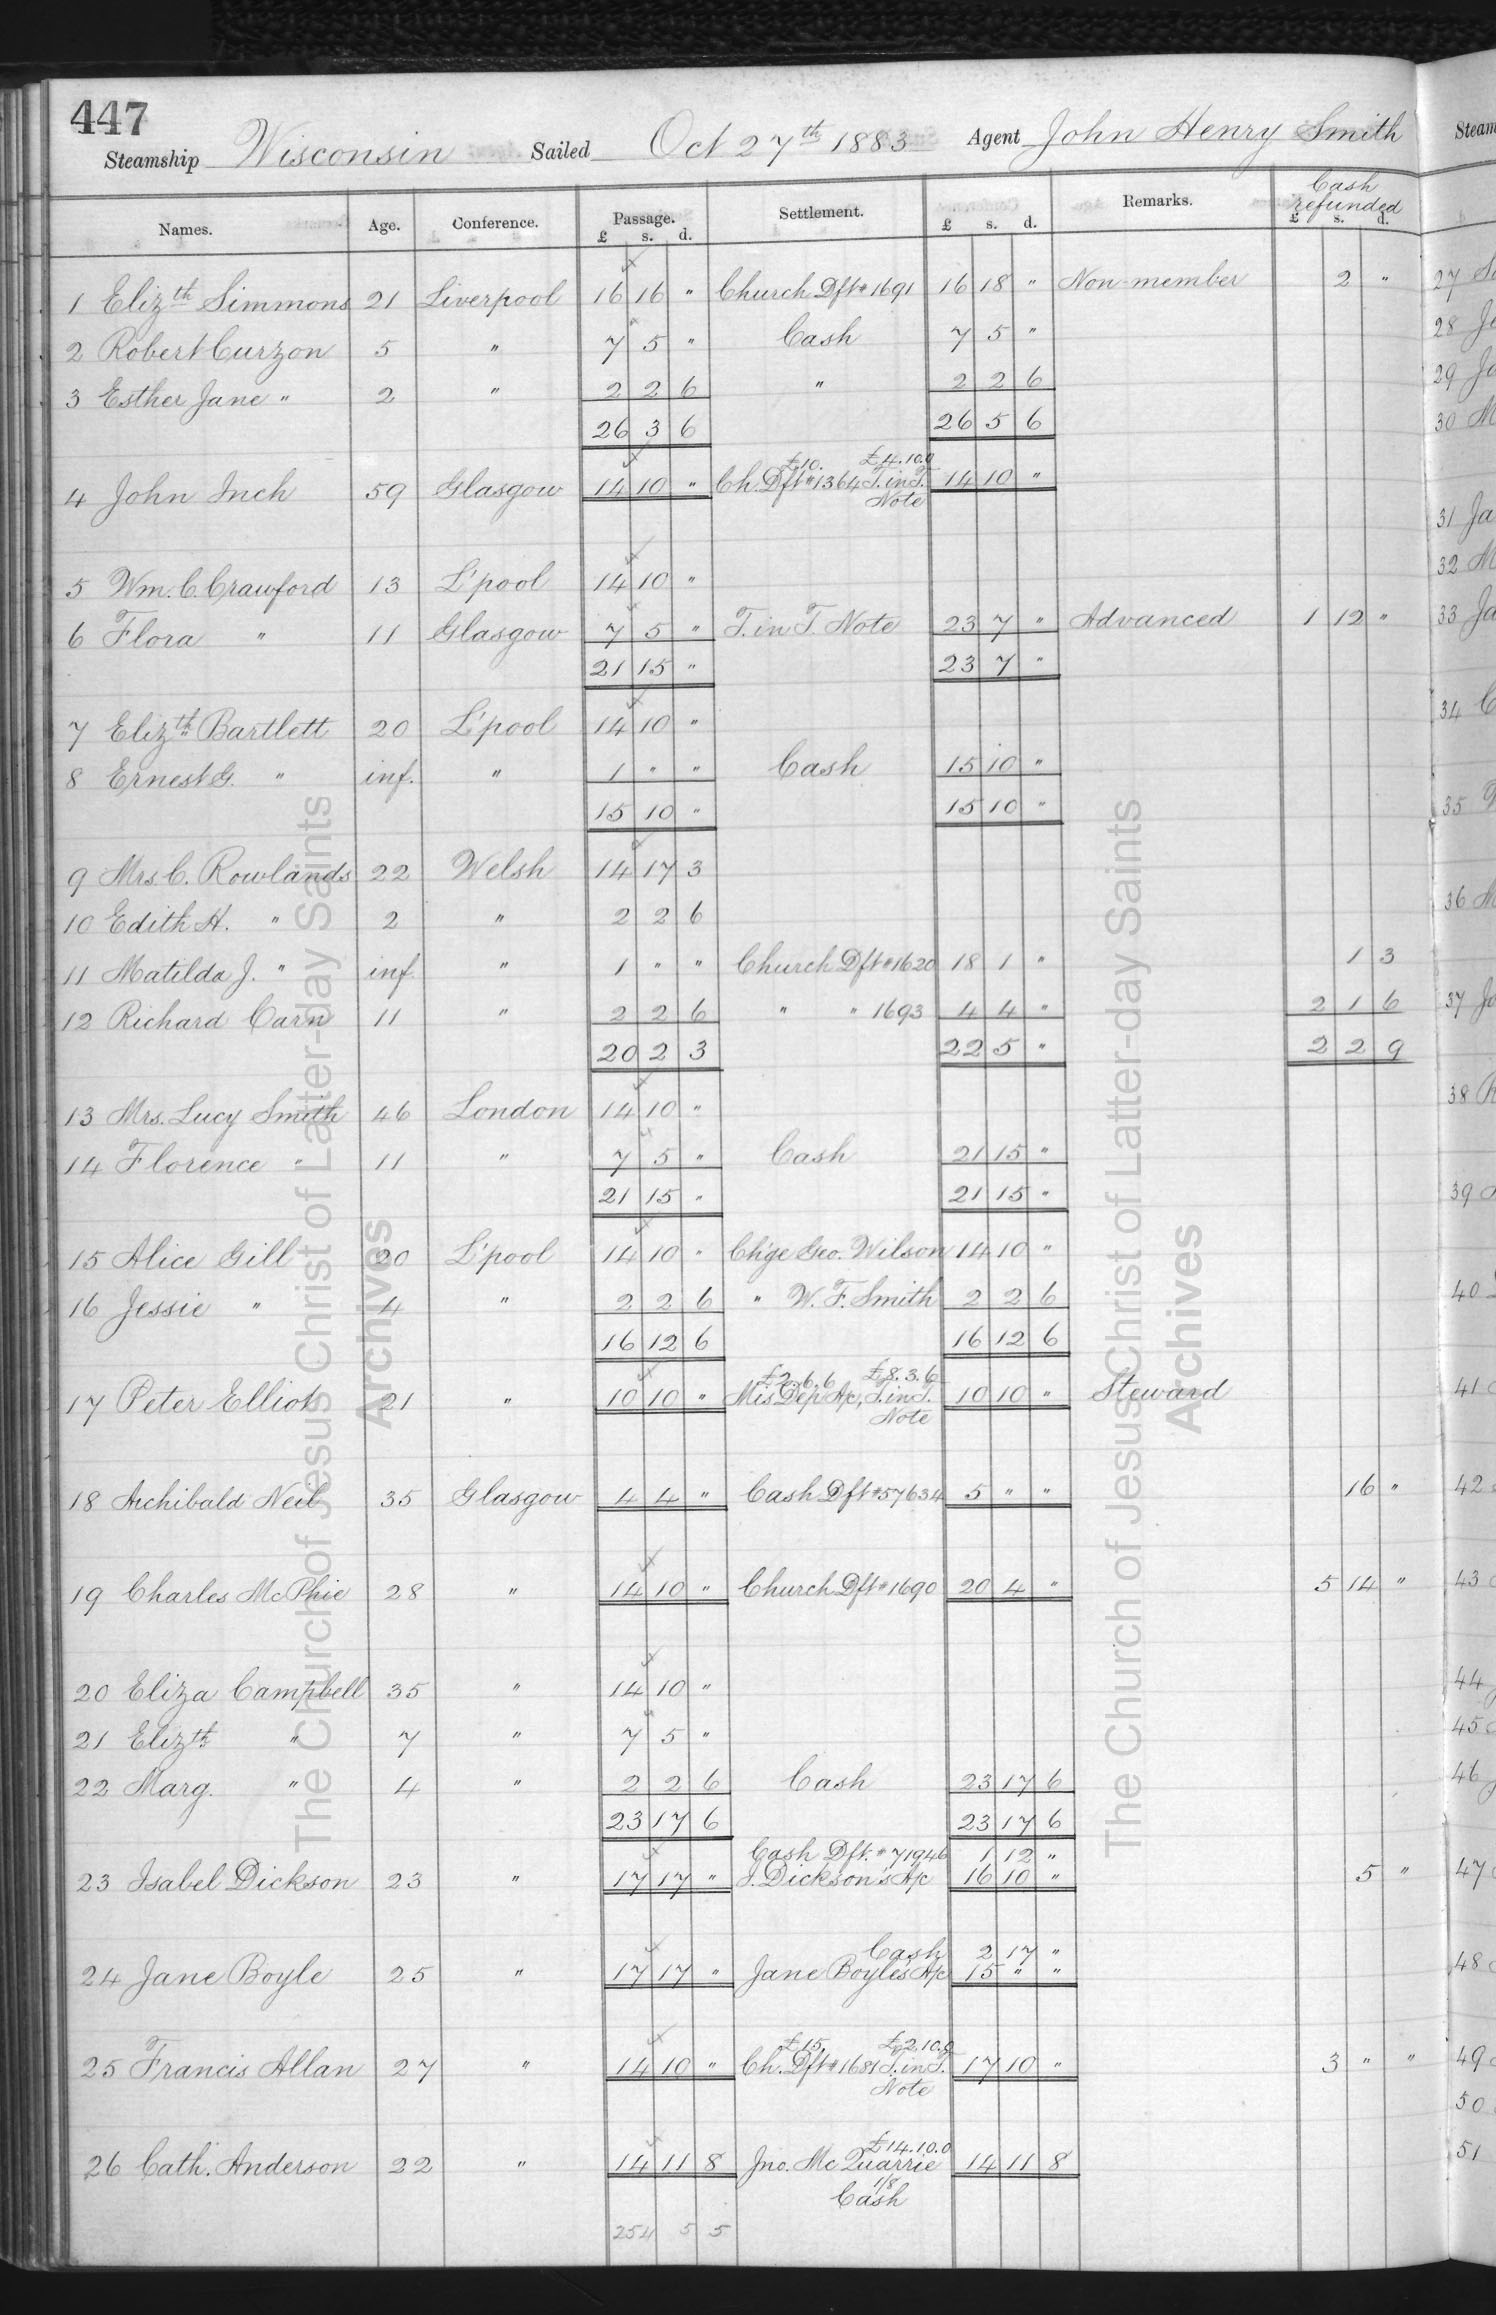 447
Steamship Wisconsin Sailed Oct 27th 1883 Agent John Henry Smith
Names. Age. Conference. Passage. £ s. d. Settlement. £ s. d. Remarks. Cash refunded £ s. d.
1 Elizth Simmons 21 Liverpool 16 16 " Church Dft # 1691 16 18 " Non-member 2 "
2 Robert Curzon 5 " 7 5 " Cash 7 5 "
3 Esther Jane " 2 " 2 2 6 " 2 2 6
26 3 6 26 5 6
£10. £4.10.0
4 John Inch 59 Glasgow 14 10 " Ch. Dft # 1364 T. in T. 14 10 "
Note
5 Wm. C. Crawford 13 L'pool 14 10 "
6 Flora " 11 Glasgow 7 5 " T. in T. Note 23 7 " Advanced 1 12 "
21 15 " 23 7 "
7 Elizth Bartlett 20 L'pool 14 10 "
8 Ernest G. " inf. " 1 " " Cash 15 10 "
15 10 " 15 10 "
9 Mrs C. Rowlands 22 Welsh 14 17 3
10 Edith H. " 2 " 2 2 6
11 Matilda J. " inf. " 1 " " Church Dft # 1620 18 1 " 1 3
12 Richard Carn 11 " 2 2 6 " " 1693 4 4 " 2 1 6
20 2 3 22 5 " 2 2 9
13 Mrs. Lucy Smith 46 London 14 10 "
14 Florence " 11 " 7 5 " Cash 21 15 "
21 15 " 21 15 "
15 Alice Gill 20 L'pool 14 10 " Ch'ge Geo. Wilson 14 10 "
16 Jessie " 4 " 2 2 6 " W. F. Smith 2 2 6
16 12 6 16 12 6
£2.6.6 £8.3.6
17 Peter Elliot 21 " 10 10 " Mis Dep A/c, T. in T. 10 10 " Steward
Note
18 Archibald Neil 35 Glasgow 4 4 " Cash Dft # 57634 5 " " 16 "
19 Charles McPhie 28 " 14 10 " Church Dft # 1690 20 4 " 5 14 "
20 Eliza Campbell 35 " 14 10 "
21 Elizth " 7 " 7 5 "
22 Marg. " 4 " 2 2 6 Cash 23 17 6
23 17 6 23 17 6
Cash Dft. # 71946 1 12 "
23 Isabel Dickson 23 " 17 17 " J. Dickson's A/c 16 10 " 5 "
Cash 2 17 "
24 Jane Boyle 25 " 17 17 " Jane Boyle's A/c 15 " "
£15. £2.10.0
25 Francis Allan 27 " 14 10 " Ch. Dft # 1681 T. in T. 17 10 " 3 " "
Note
£14.10.0
26 Cath. Anderson 22 " 14 11 8 Jno. McQuarrie 14 11 8
1/8
Cash
254 5 5
The Church of Jesus Christ of Latter-day Saints
Archives
The Church of Jesus Christ of Latter-day Saints
Archives
Steam
27
28
29
30
31 Ja
32
33
34
35
36
37
38
39
40
41
42
43
44
45
46
47
48
49
50
51